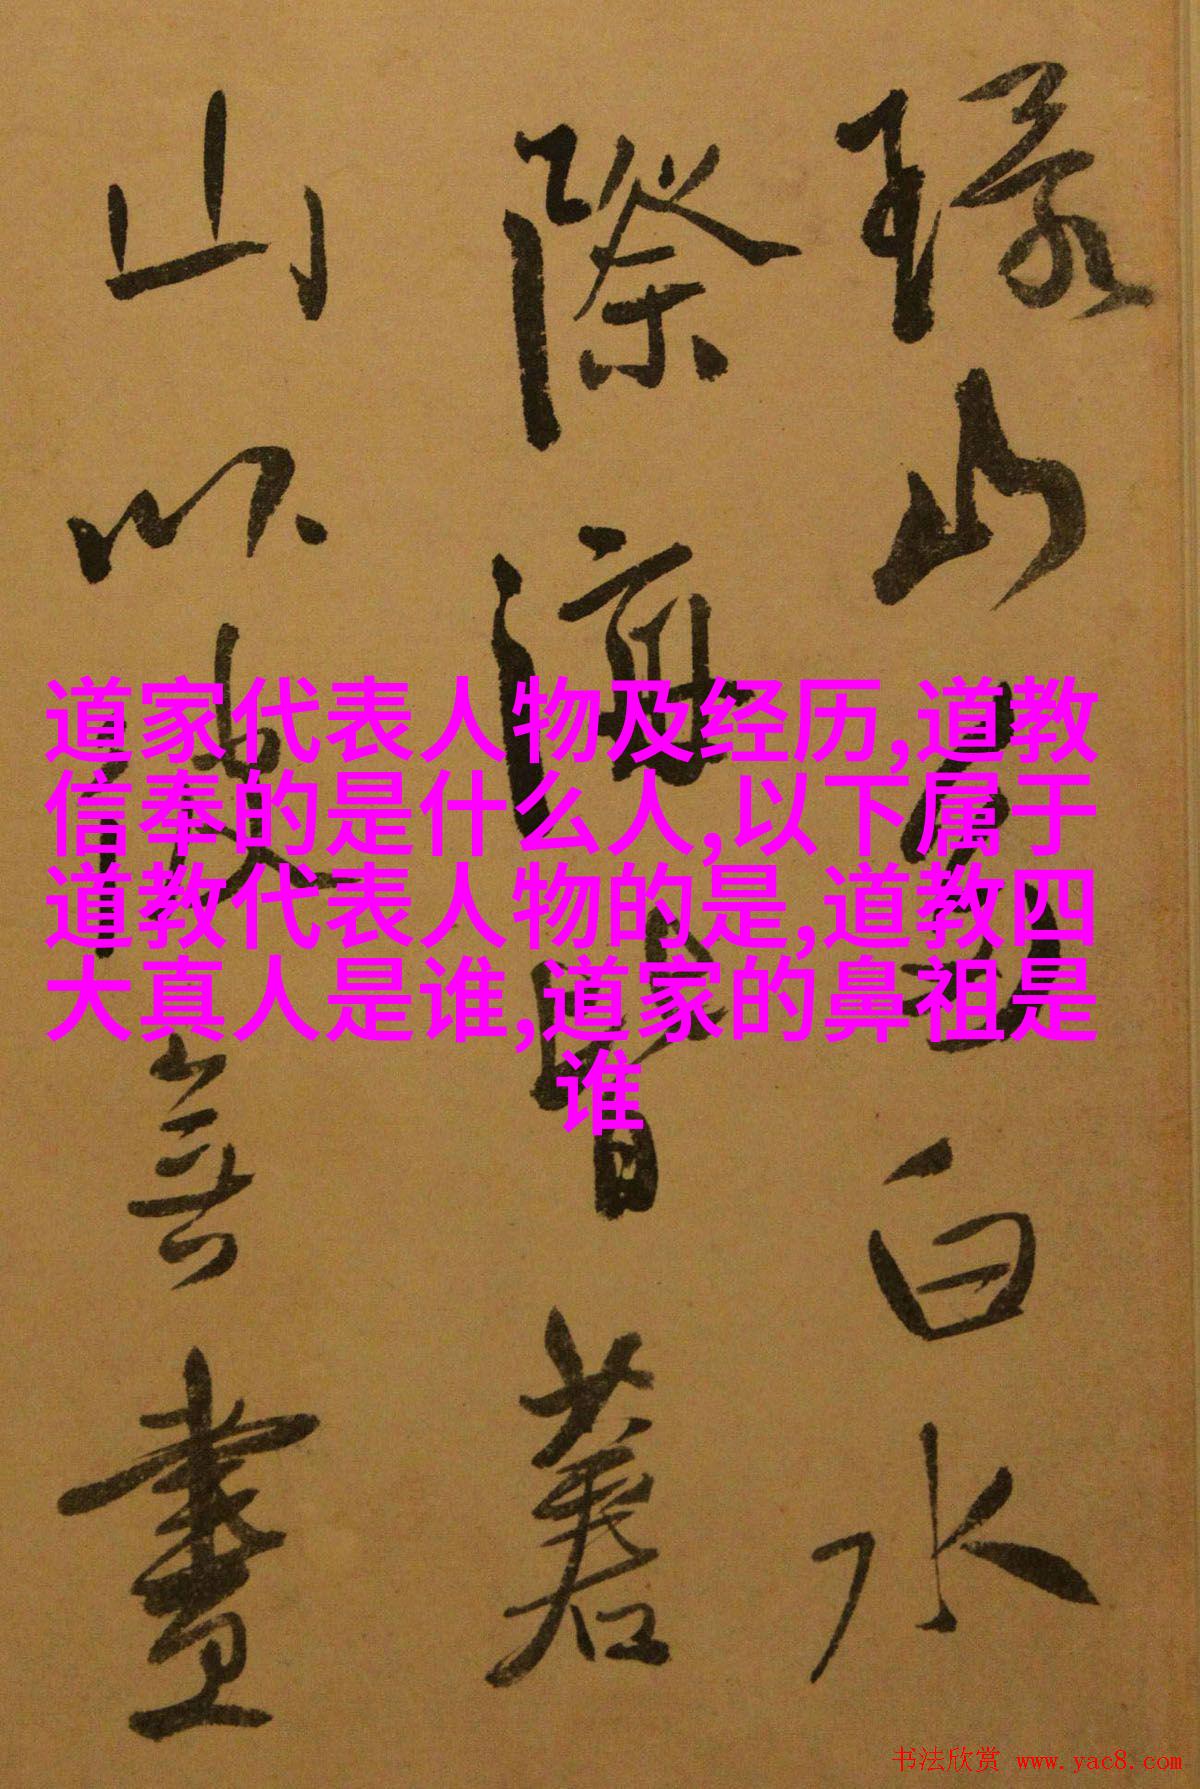 山白水
際海皆著
山以無畫
道家代表人物及经历,道教
信奉的是什么人,以下属于
道教代表人物的是,道教四
大真人是谁,道家的鼻祖是
谁
书法欣赏 www.yac8.com